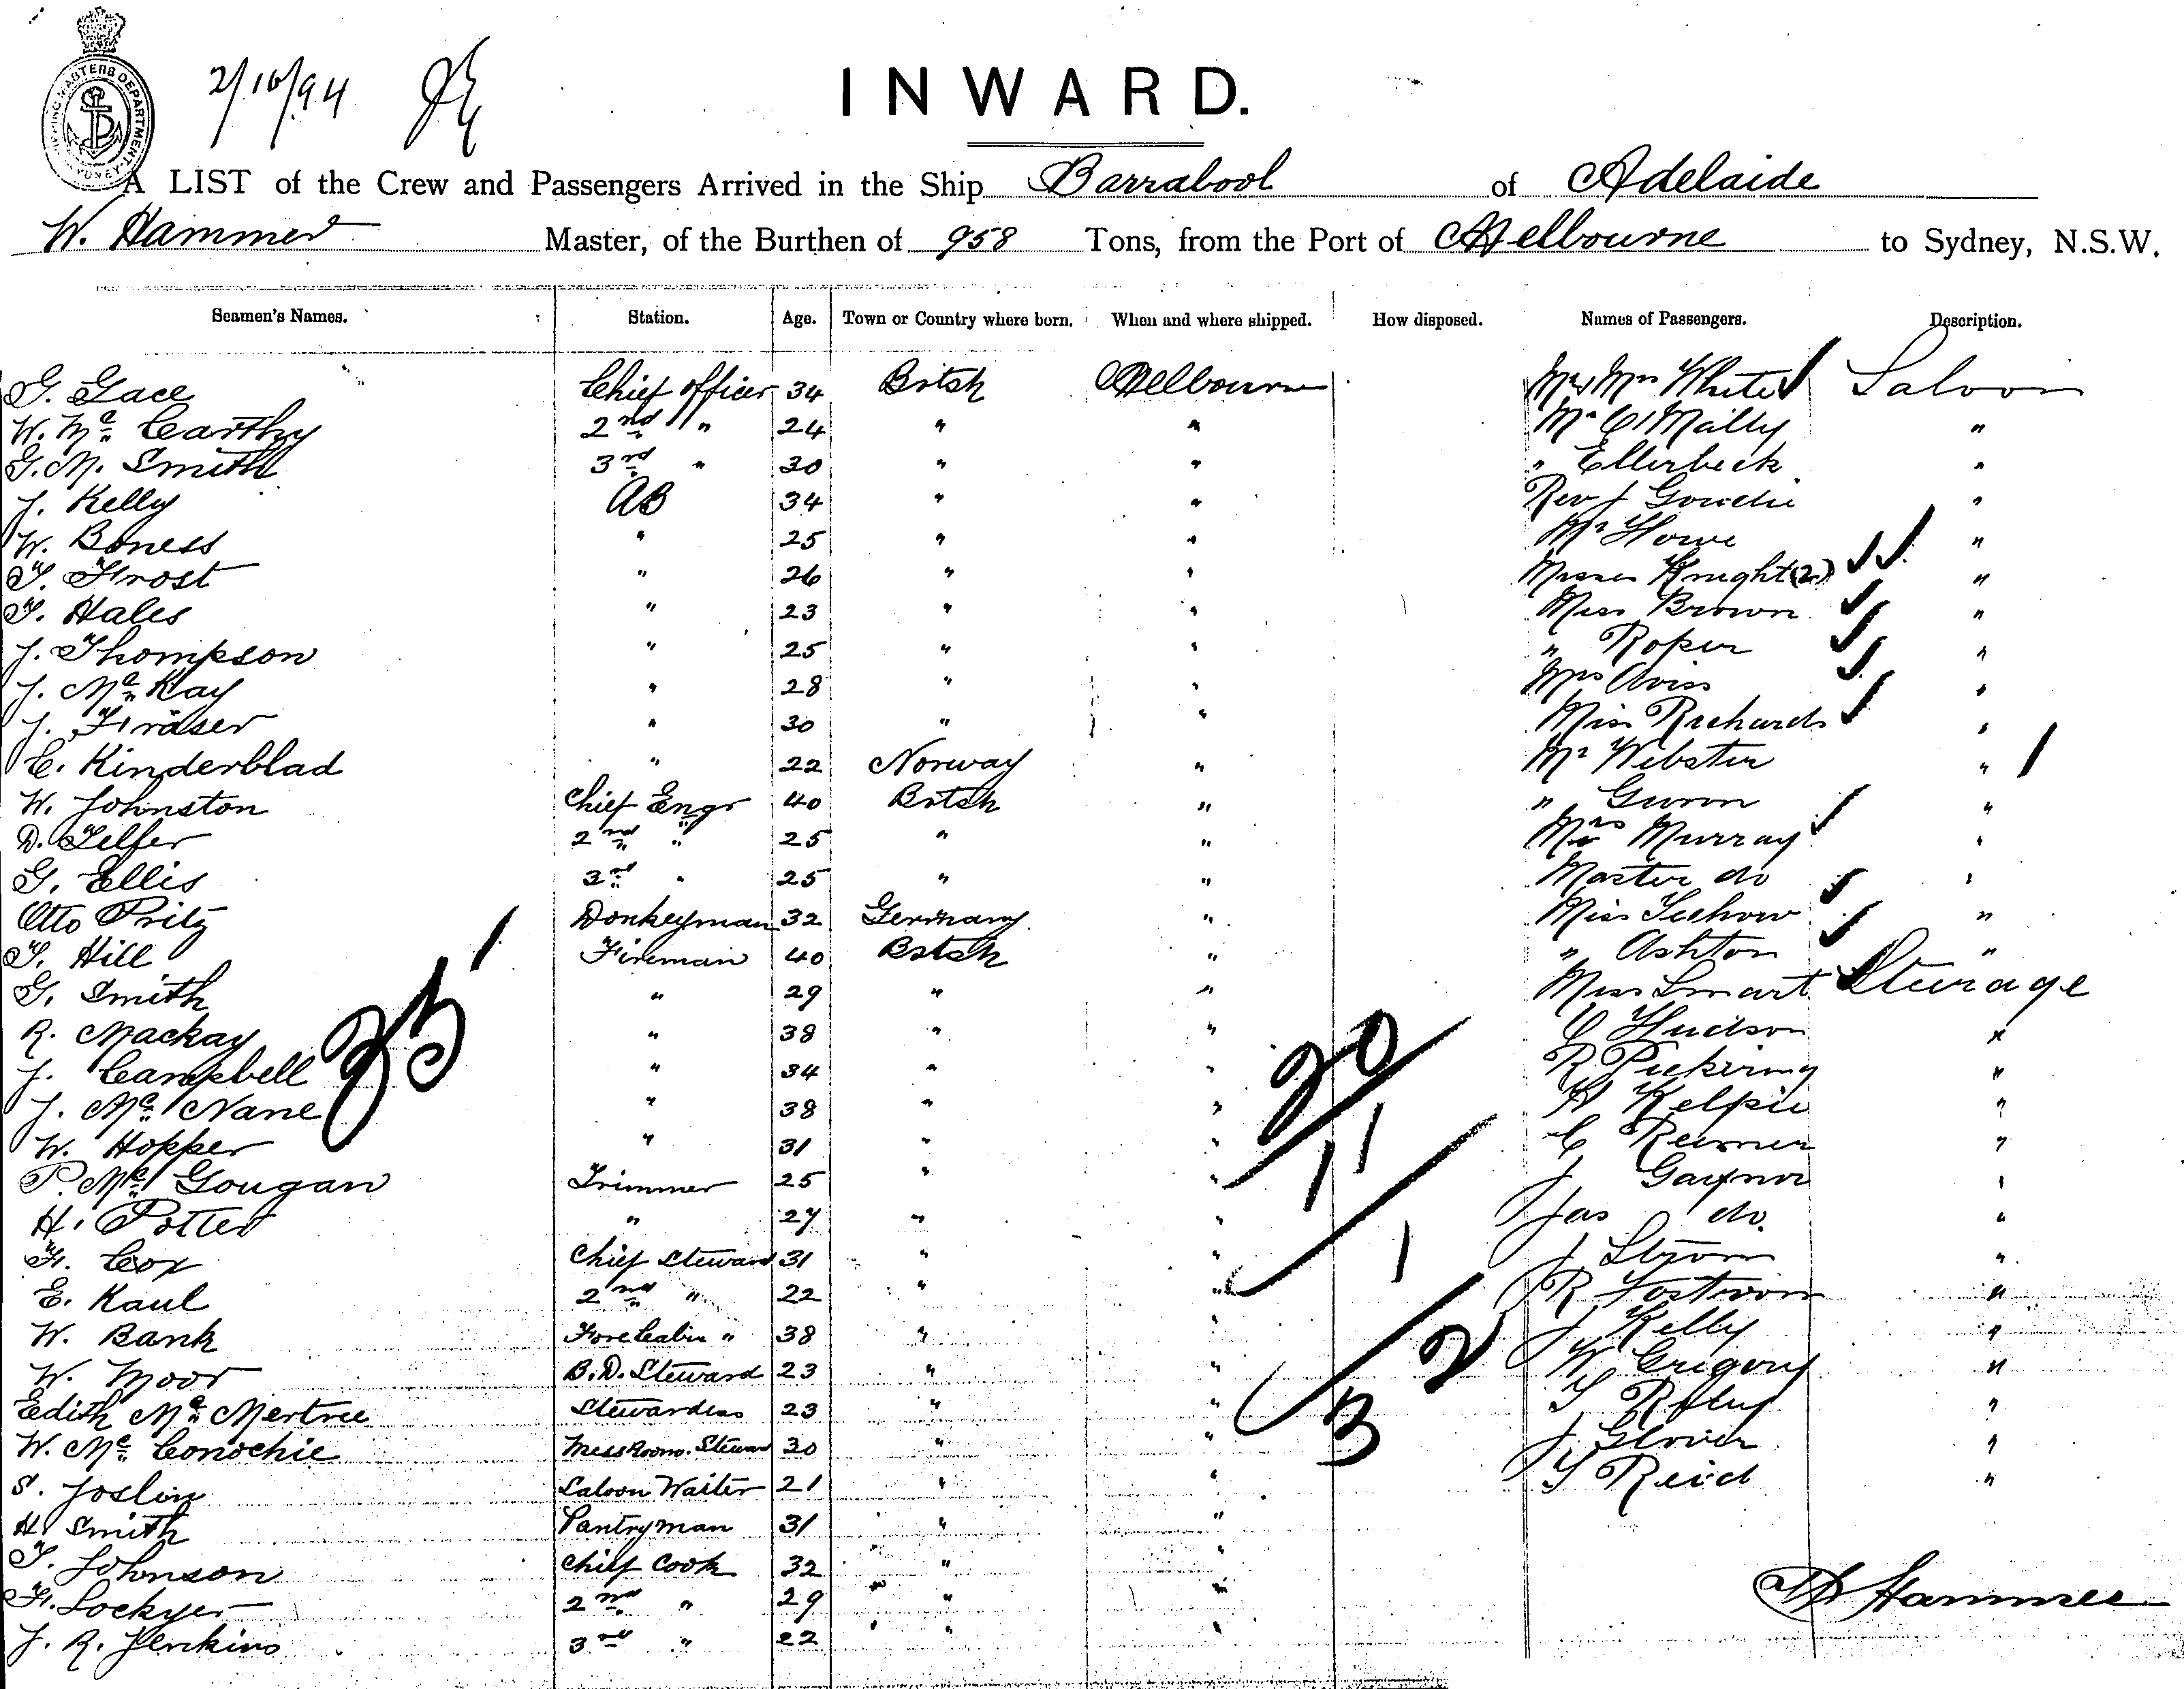 SHIPPING MASTERS DEPARTMENT SYDNEY
2/10/94
INWARD.
A LIST of the Crew and Passengers Arrived in the Ship Barrabool of Adelaide
W. Hammer Master, of the Burthen of 958 Tons, from the Port of Melbourne to Sydney, N.S.W.
Seamen's Names. Station. Age. Town or Country where born. When and where shipped. How disposed. Names of Passengers. Description.
G. Gace Chief Officer 34 Botsh Melbourne Mr Mrs White Saloon
W. Mc Carthy 2nd " 24 " " Mr O'Mally "
G. M. Smith 3rd " 30 " " " Ellerbeck "
J. Kelly AB 34 " " Rev J Goudie "
W. Boness " 25 " " Mr Howe "
T. Frost " 26 " " Misses Knight (2) "
T. Hales " 23 " " Miss Brown "
J. Thompson " 25 " " " Roper "
J. Mc Kay " 28 " " Mrs Aviss "
J. Fraser " 30 " " Miss Richards "
E. Kinderblad " 22 Norway " Mr Webster "
W. Johnston Chief Engr 40 Botsh " "
D. Telfer 2nd " 25 " " Mrs Murray "
G. Ellis 3rd " 25 " " Master do "
Otto Pritz Donkeyman 32 Germany " Miss "
T. Hill Fireman 40 Botsh " " Ashton "
G. Smith " 29 " " Miss Smart Sturage
R. Mackay " 38 " " C Hudson "
J. Campbell " 34 " " R Pickering "
J. Mc Nane " 38 " " H Kelpie "
W. Hopper " 31 " " C Reimer "
P. Mc Gougan Trimmer 25 " " J Gaynor "
H. Potter " 27 " " Jas do. "
F. Cox Chief Steward 31 " " J Strom "
E. Kaul 2nd " 22 " " R "
W. Bank Fore Cabin " 38 " " J Kelly "
W. Moor B.D. Steward 23 " " W Gregory "
Edith Mc Mertrie Stewardess 23 " " "
W. Mc Conochie Mess Room. Steward 30 " " J Glover "
S. Joslin Saloon Waiter 21 " " T Reid "
H. Smith Pantryman 31 " "
T. Johnson Chief Cook 32 " "
F. Lockyer 2nd " 29 " "
J. R. Jenkins 3rd " 22 " "
35
20
11
1
2
3
W Hammer